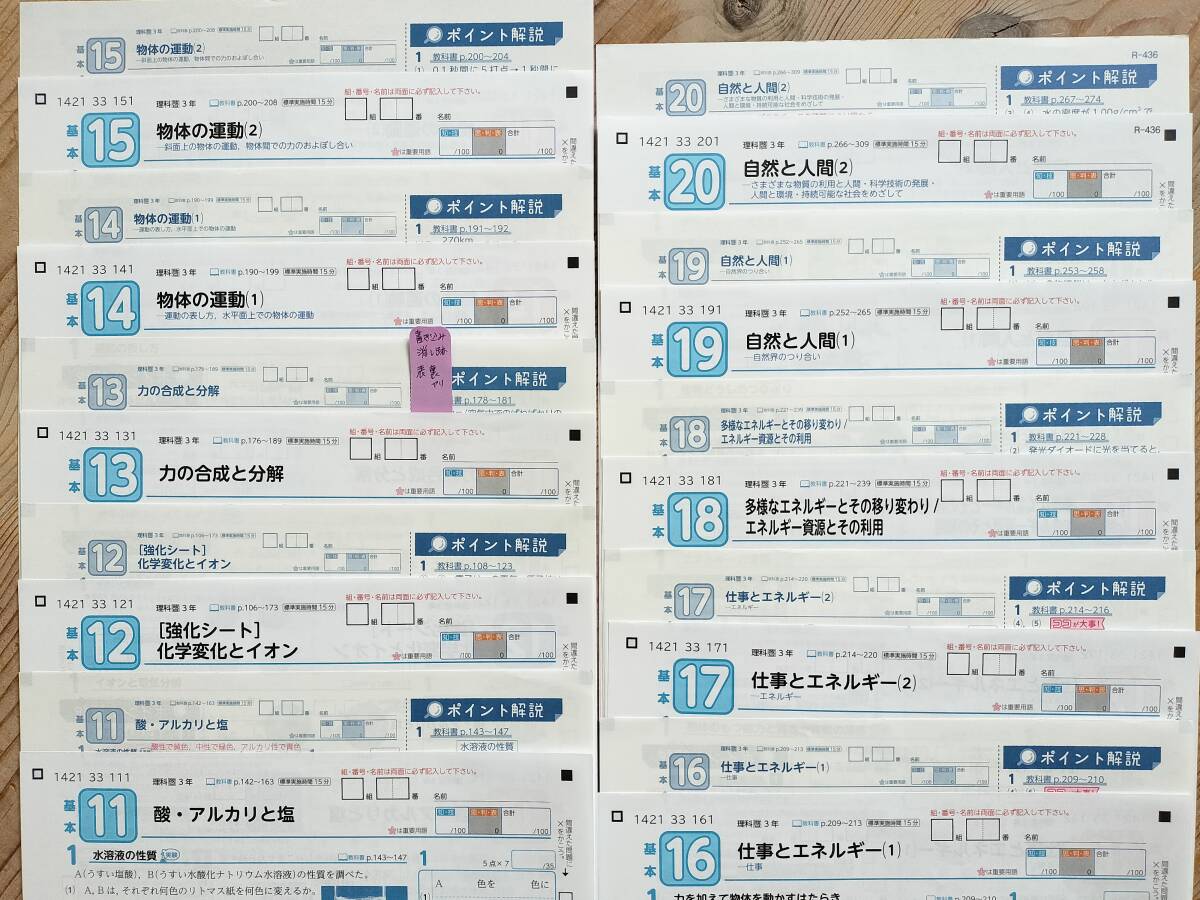 基本
15
理科啓3年
教科書 p.200～208
標準実施時間15分
組
番
名前
物体の運動(2)
―斜面上の物体の運動，物体間での力のおよぼし合い
ポイント解説
1 教科書p.200～204
(1) 0.1秒間に5打点→1秒間に
1421 33 151
理科啓3年
教科書 p.200～208
標準実施時間15分
組・番号・名前は両面に必ず記入して下さい。
組
番
名前
基本
15
物体の運動(2)
―斜面上の物体の運動，物体間での力のおよぼし合い
は重要用語
知・技
思・判・表
合計
/100
0
/100
14
物体の運動(1)
―運動の表し方，水平面上での物体の運動
ポイント解説
1 教科書p.191～192
270km
1421 33 141
理科啓3年
教科書 p.190～199
標準実施時間15分
組・番号・名前は両面に必ず記入して下さい。
組
番
名前
基本
14
物体の運動(1)
―運動の表し方，水平面上での物体の運動
は重要用語
知・技
思・判・表
合計
/100
0
/100
書き込み
消し跡
表裏
アリ
13
力の合成と分解
ポイント解説
p.178～181
1421 33 131
理科啓3年
教科書 p.176～189
標準実施時間15分
組・番号・名前は両面に必ず記入して下さい。
組
番
名前
基本
13
力の合成と分解
は重要用語
知・技
思・判・表
合計
/100
0
/100
12
[強化シート]
化学変化とイオン
ポイント解説
1 教科書p.108～123
1421 33 121
理科啓3年
教科書 p.106～173
標準実施時間15分
組・番号・名前は両面に必ず記入して下さい。
組
番
名前
基本
12
[強化シート]
化学変化とイオン
は重要用語
知・技
思・判・表
合計
/100
0
/100
11
酸・アルカリと塩
ポイント解説
1 教科書p.143～147
水溶液の性質
酸性で黄色，中性で緑色，アルカリ性で青色
1421 33 111
理科啓3年
教科書 p.142～163
標準実施時間15分
組・番号・名前は両面に必ず記入して下さい。
組
番
名前
基本
11
酸・アルカリと塩
は重要用語
知・技
思・判・表
合計
/100
0
/100
1 水溶液の性質 実験
p.143～147
1
5点×7
/35
A(うすい塩酸)，B(うすい水酸化ナトリウム水溶液)の性質を調べた。
(1) A，Bは，それぞれ何色のリトマス紙を何色に変えるか。
A 色を 色に
R-436
20
自然と人間(2)
―さまざまな物質の利用と人間・科学技術の発展・
人間と環境・持続可能な社会をめざして
ポイント解説
1 教科書p.267～274
1421 33 201
理科啓3年
教科書 p.266～309
標準実施時間15分
組・番号・名前は両面に必ず記入して下さい。
R-436
組
番
名前
基本
20
自然と人間(2)
―さまざまな物質の利用と人間・科学技術の発展・
人間と環境・持続可能な社会をめざして
は重要用語
知・技
思・判・表
合計
/100
0
/100
19
自然と人間(1)
―自然界のつり合い
ポイント解説
1 教科書p.253～258
1421 33 191
理科啓3年
教科書 p.252～265
標準実施時間15分
組・番号・名前は両面に必ず記入して下さい。
組
番
名前
基本
19
自然と人間(1)
―自然界のつり合い
は重要用語
知・技
思・判・表
合計
/100
0
/100
18
多様なエネルギーとその移り変わり/
エネルギー資源とその利用
ポイント解説
1 教科書p.221～228
(2) 発光ダイオードに光を当てると，
1421 33 181
理科啓3年
教科書 p.221～239
標準実施時間15分
組・番号・名前は両面に必ず記入して下さい。
組
番
名前
基本
18
多様なエネルギーとその移り変わり/
エネルギー資源とその利用
は重要用語
知・技
思・判・表
合計
/100
0
/100
17
仕事とエネルギー(2)
―エネルギー
ポイント解説
1 教科書p.214～216
(4)，(5) ココが大事！
1421 33 171
理科啓3年
教科書 p.214～220
標準実施時間15分
組・番号・名前は両面に必ず記入して下さい。
組
番
名前
基本
17
仕事とエネルギー(2)
―エネルギー
は重要用語
知・技
思・判・表
合計
/100
0
/100
16
仕事とエネルギー(1)
―仕事
ポイント解説
1 教科書p.209～210
1421 33 161
理科啓3年
教科書 p.209～213
標準実施時間15分
組・番号・名前は両面に必ず記入して下さい。
組
番
名前
基本
16
仕事とエネルギー(1)
―仕事
は重要用語
知・技
思・判・表
合計
/100
0
/100
1 力を加えて物体を動かすはたらき
p.209～210